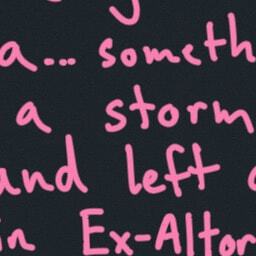 a... someth
a storm
and left
in Ex-Altor